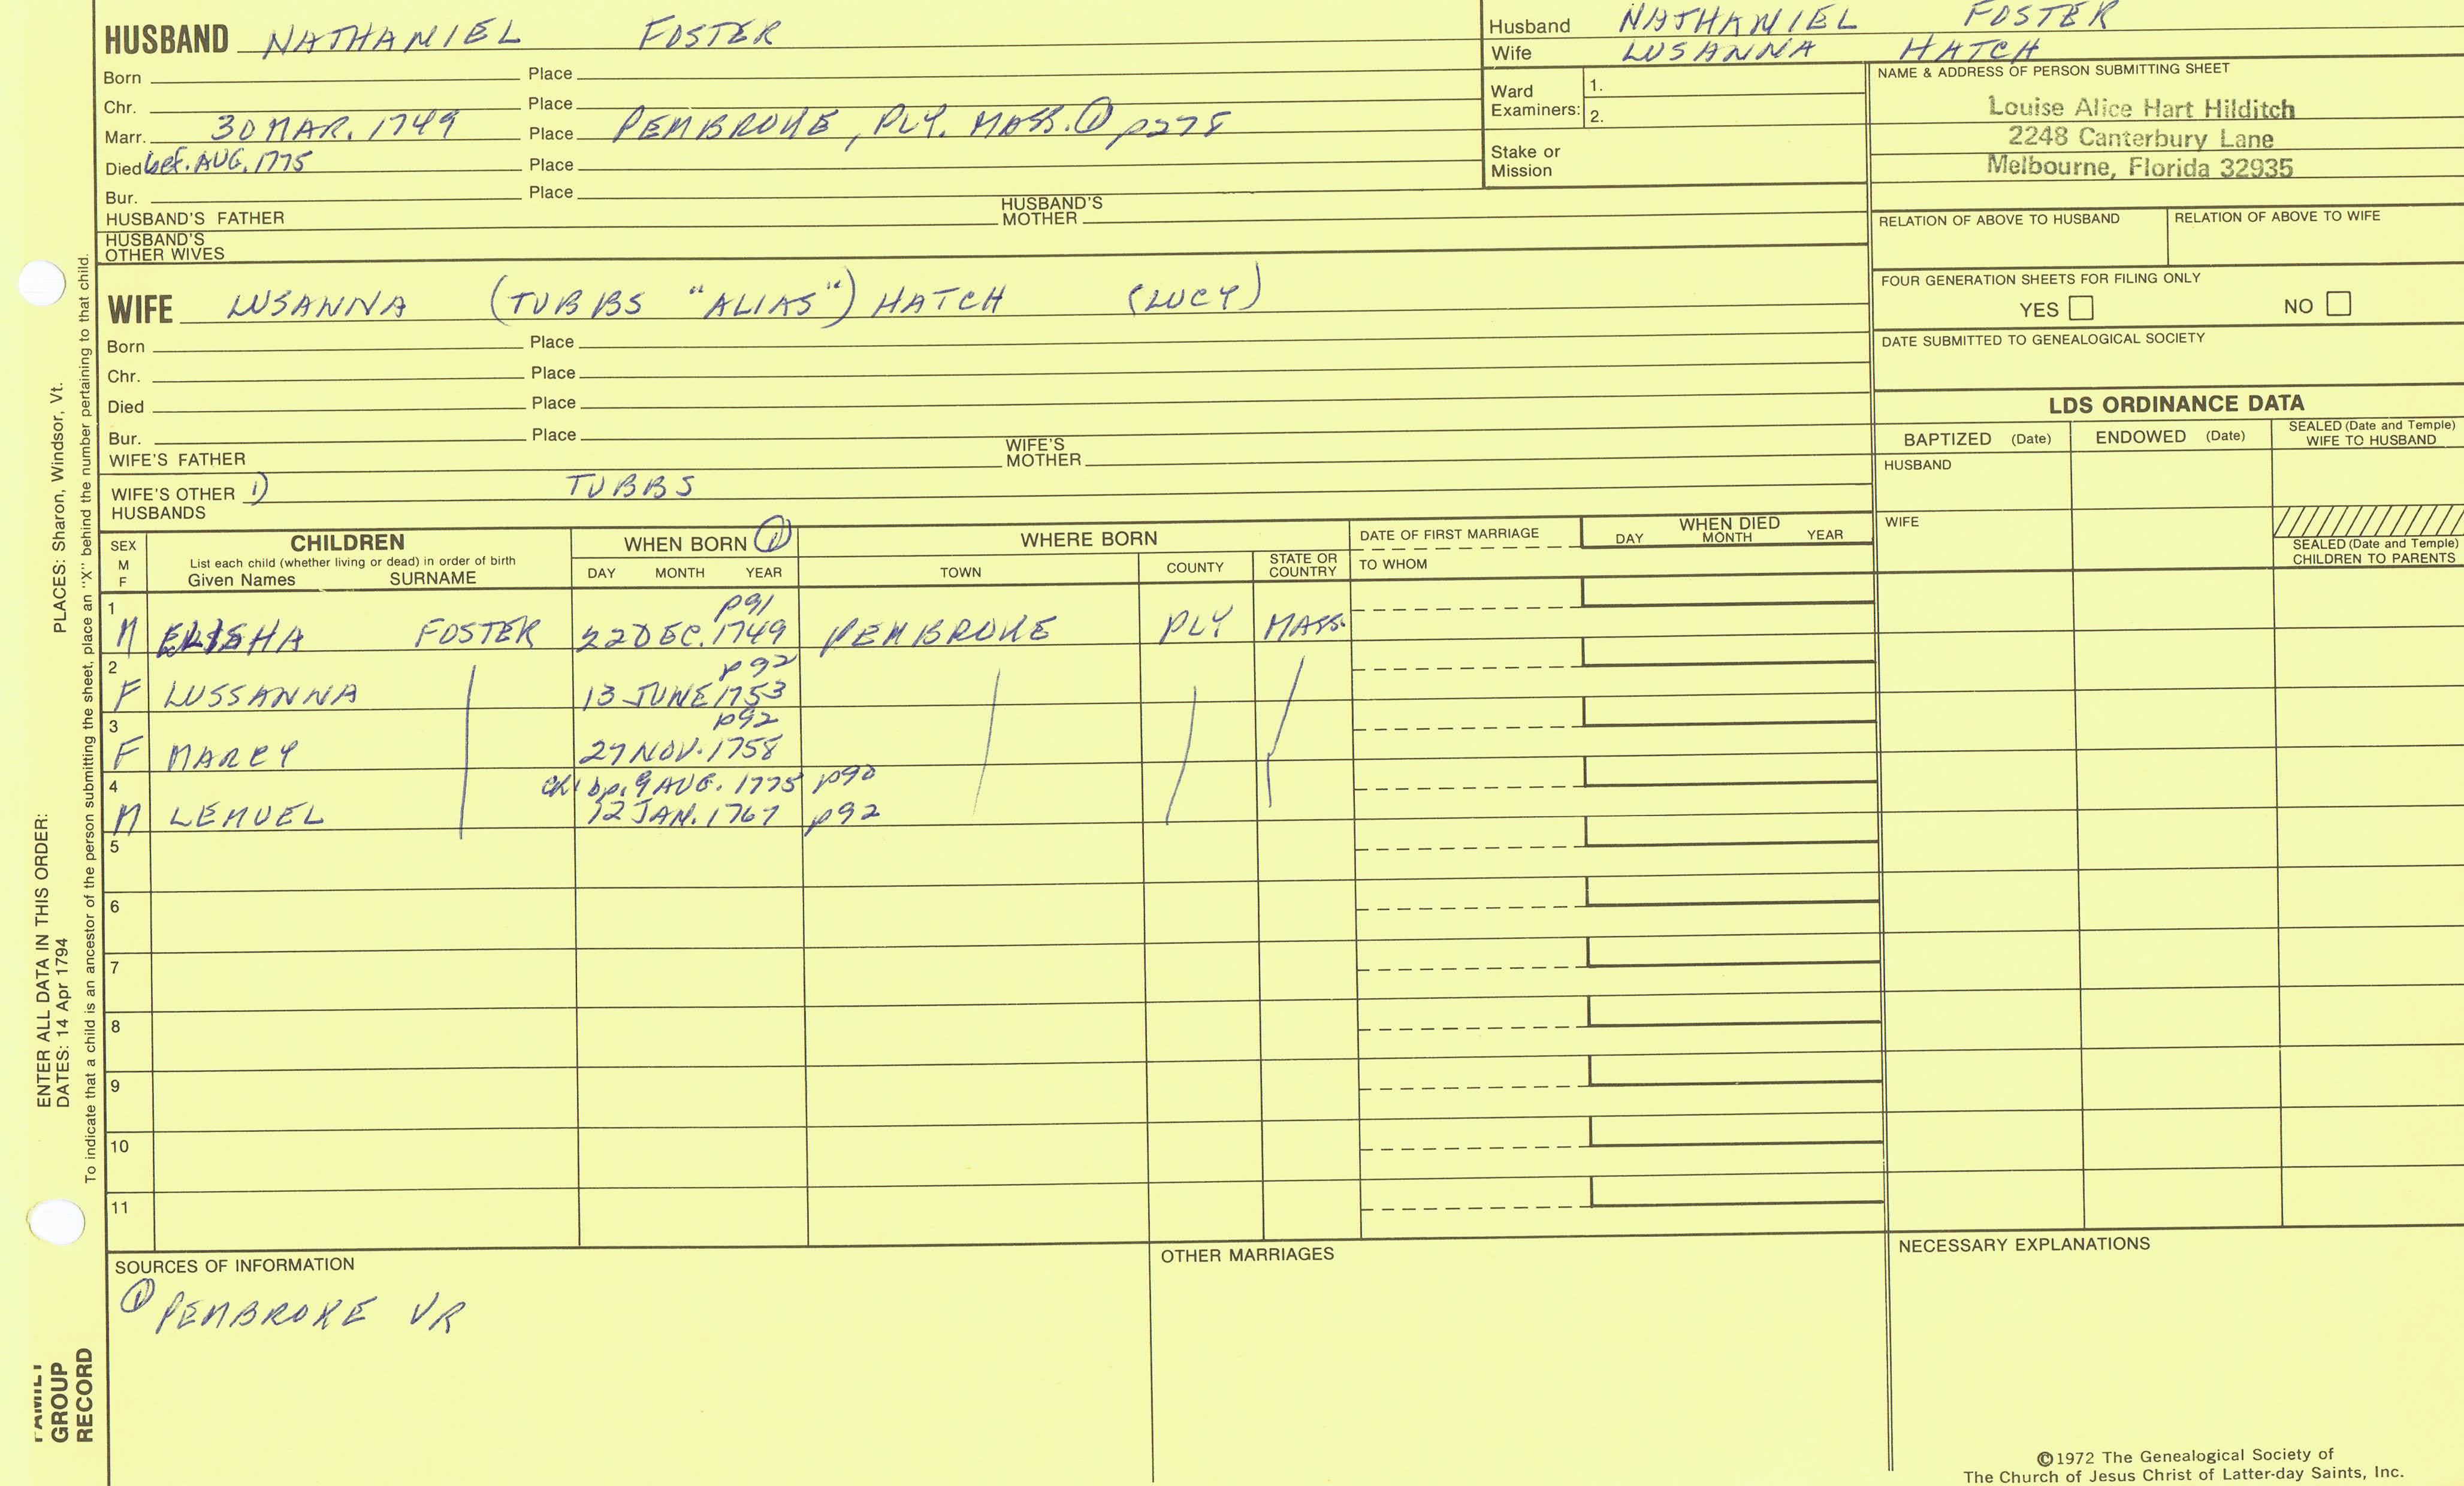 HUSBAND NATHANIEL FOSTER
Born Place
Chr. Place
Marr. 30 MAR. 1749 Place PEMBROKE, PLY. MASS. ① p278
Died bef. AUG. 1775 Place
Bur. Place
HUSBAND'S FATHER HUSBAND'S MOTHER
HUSBAND'S OTHER WIVES
Husband NATHANIEL FOSTER
Wife LUSANNA HATCH
Ward Examiners: 1.
2.
Stake or Mission
NAME & ADDRESS OF PERSON SUBMITTING SHEET
Louise Alice Hart Hilditch
2248 Canterbury Lane
Melbourne, Florida 32935
RELATION OF ABOVE TO HUSBAND RELATION OF ABOVE TO WIFE
FOUR GENERATION SHEETS FOR FILING ONLY
YES NO
DATE SUBMITTED TO GENEALOGICAL SOCIETY
WIFE LUSANNA (TUBBS "ALIAS") HATCH (LUCY)
Born Place
Chr. Place
Died Place
Bur. Place
WIFE'S FATHER WIFE'S MOTHER
WIFE'S OTHER HUSBANDS 1) TUBBS
LDS ORDINANCE DATA
BAPTIZED (Date) ENDOWED (Date) SEALED (Date and Temple) WIFE TO HUSBAND
HUSBAND
WIFE
SEALED (Date and Temple) CHILDREN TO PARENTS
SEX M F
CHILDREN
List each child (whether living or dead) in order of birth
Given Names SURNAME
WHEN BORN ①
DAY MONTH YEAR
WHERE BORN
TOWN COUNTY STATE OR COUNTRY
DATE OF FIRST MARRIAGE
TO WHOM
WHEN DIED
DAY MONTH YEAR
1 p91
M ELISHA FOSTER 22 DEC. 1749 PEMBROKE PLY MASS.
2 p92
F LUSSANNA 13 JUNE 1753
3 p92
F MARCY 27 NOV. 1758
4 bp. 9 AUG. 1775 p90
M LEMUEL 12 JAN. 1767 p92
5
6
7
8
9
10
11
SOURCES OF INFORMATION
① PEMBROKE VR
OTHER MARRIAGES
NECESSARY EXPLANATIONS
©1972 The Genealogical Society of
The Church of Jesus Christ of Latter-day Saints, Inc.
ENTER ALL DATA IN THIS ORDER:
DATES: 14 Apr 1794 PLACES: Sharon, Windsor, Vt.
To indicate that a child is an ancestor of the person submitting the sheet, place an "X" behind the number pertaining to that child.
FAMILY
GROUP
RECORD